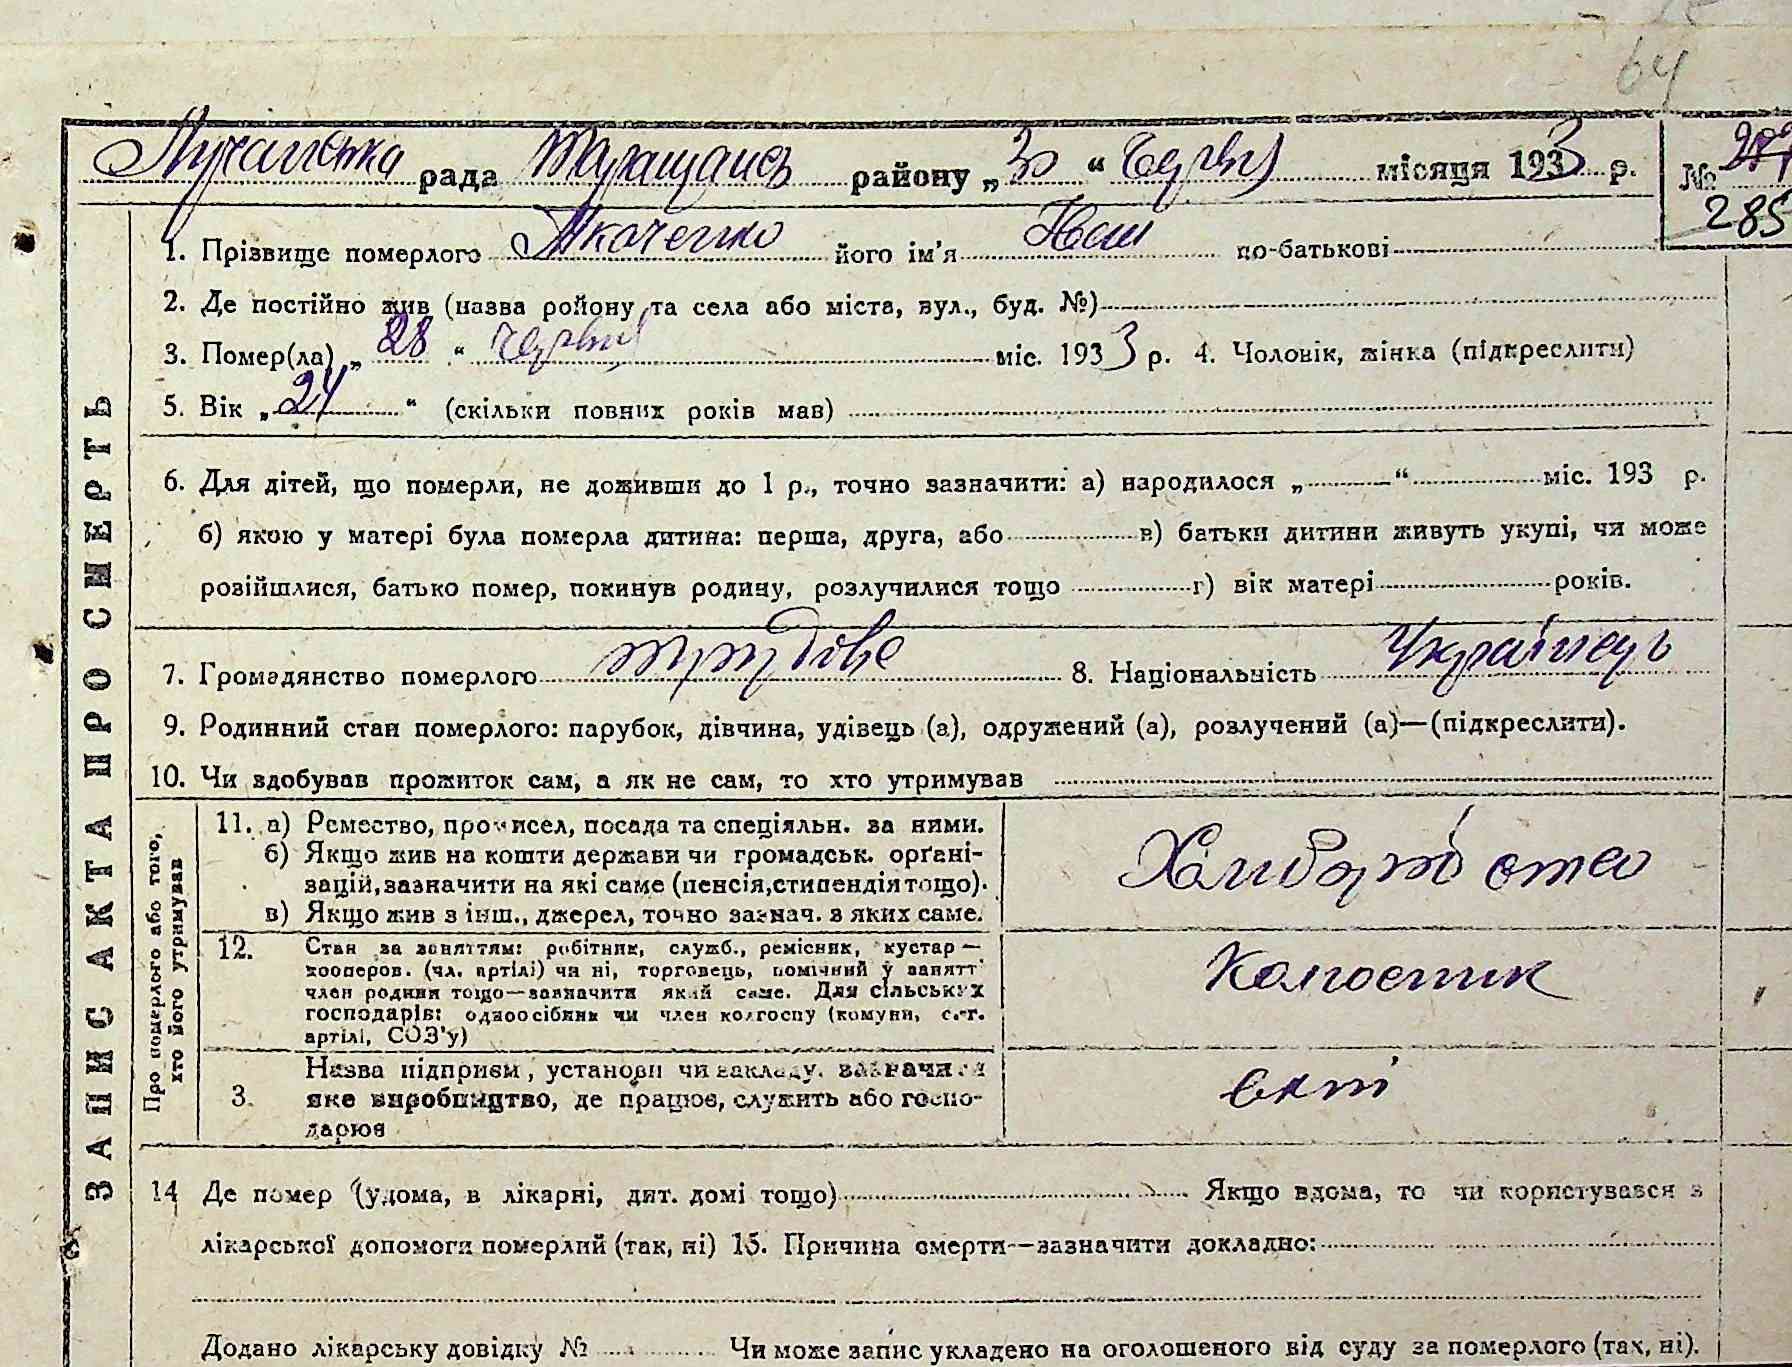 64
Лучанська рада Таращансь району „30“ Червня місяця 1933 р. № 277
285
1. Прізвище померлого Ткаченко його ім'я по-батькові
2. Де постійно жив (назва ройону та села або міста, вул., буд. №)
3. Помер(ла) „28“ червня міс. 1933 р. 4. Чоловік, жінка (підкреслити)
5. Вік „24“ (скільки повних років мав)
6. Для дітей, що померли, не доживши до 1 р., точно зазначити: а) народилося „ “ міс. 193 р.
б) якою у матері була померла дитина: перша, друга, або в) батьки дитини живуть укупі, чи може
розійшлися, батько помер, покинув родину, розлучилися тощо г) вік матері років.
7. Громадянство померлого трудове 8. Національність Українець
9. Родинний стан померлого: парубок, дівчина, удівець (а), одружений (а), розлучений (а)—(підкреслити).
10. Чи здобував прожиток сам, а як не сам, то хто утримував
ЗАПИС АКТА ПРО СМЕРТЬ
Про померлого або того, хто його утримував
11. а) Ремество, промисел, посада та спеціяльн. за ними.
б) Якщо жив на кошти держави чи громадськ. орґані-
зацій, зазначити на які саме (пенсія, стипендія тощо).
в) Якщо жив з інш., джерел, точно зазнач. з яких саме.
12. Стан за заняттям: робітник, служб., ремісник, кустар —
кооперов. (чл. артілі) чи ні, торговець, помічний у занятті
член родини тощо—зазначити який саме. Для сільських
господарів: одноосібник чи член колгоспу (комуни, с.-г.
артілі, СОЗ'у)
Колгоспник
3. Назва підприєм, установи чи закладу, зазначити
яке виробництво, де працює, служить або госпо-
дарює
14 Де помер (удома, в лікарні, дит. домі тощо) Якщо вдома, то чи користувався з
лікарської допомоги померлий (так, ні) 15. Причина смерти—зазначити докладно:
Додано лікарську довідку № Чи може запис укладено на оголошеного від суду за померлого (так, ні).